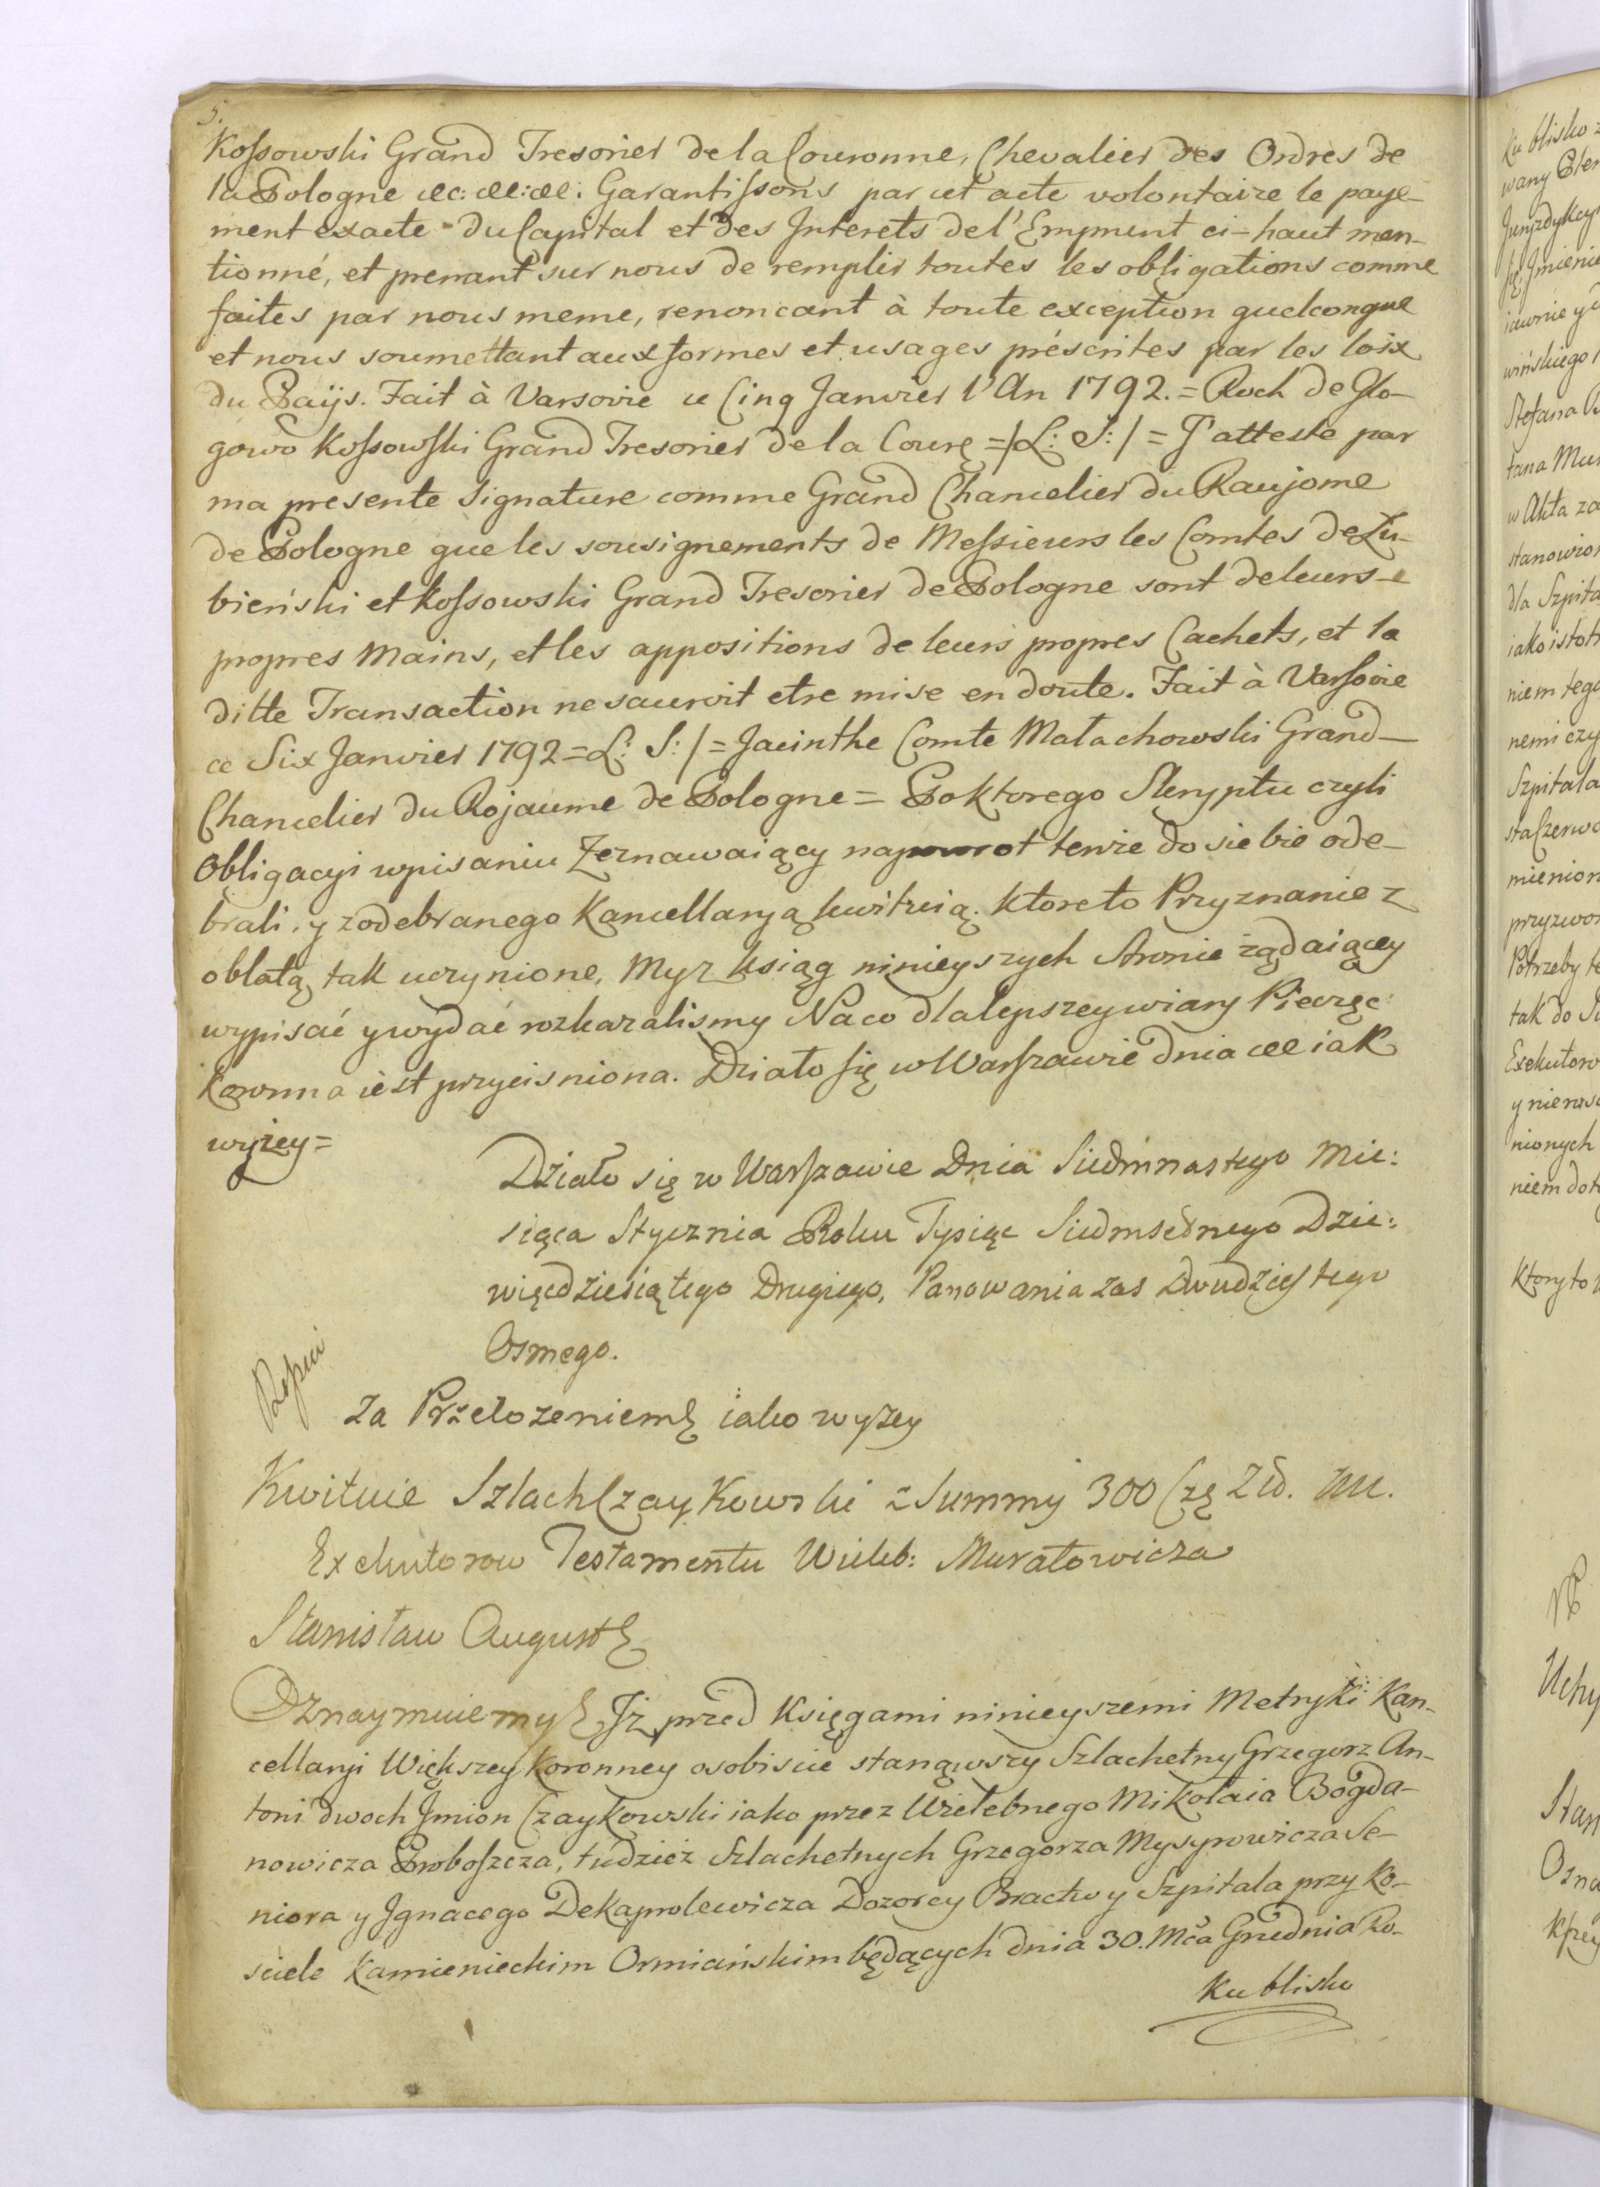 5.
Kossowski Grand Tresorier de la Couronne, Chevalier des Ordres de
la Pologne &c: &c: &c: Garantissons par cet acte volontaire le paye-
ment exacte du Capital et des Interets de l'Emprunt ci-haut men-
tionné, et prenant sur nous de remplir toutes les obligations comme
faites par nous meme, renoncant à toute exception quelconque
et nous soumettant aux formes et usages préscrites par les loix
du Païjs. Fait à Varsovie ce Cinq Janvier l'An 1792. = Roch de Glo-
gowo Kossowski Grand Tresorier de la Cour =/L: S:/= J'atteste par
ma presente Signature comme Grand Chancelier du Raujome
de Pologne que les sousignements de Messieurs les Comtes de Łu-
bieński et Kossowski Grand Tresorier de Pologne sont de leurs
propres Mains, et les appositions de leurs propres Cachets, et la
ditte Transaction ne sauroit etre mise en doute. Fait à Varsovie
ce Six Janvier 1792 = L: S:/= Jacinthe Comte Małachowski Grand
Chancelier du Rojaume de Pologne = Po ktorego Skryptu czyli
Obligacyi wpisaniu Zeznawaiący napowrot tenże do siebie ode-
brali, y z odebranego Kancellaryą kwituią. Ktore to Przyznanie z
oblatą tak uczynione, My z ksiąg ninieyszych Stronie żądaiącey
wypisać y wydać rozkazalismy Na co dla lepszey wiary Pieczęć
Koronna iest przycisniona. Działo się w Warszawie dnia &c iak
wyżey =
Działo się w Warszawie Dnia Siedmnastego Mie:
siąca Stycznia Roku Tysiąc Siedmsednego Dzie:
więcdziesiątego Drugiego, Panowania zas Dwudziestego
Osmego.
Za Przełozeniem iako wyzey
Kwituie Szlach Czaykowski z Summy 300 Czę Zło. UU.
Exekutorow Testamentu Wieleb: Muratowicza
Stanisław August
Oznaymuiemy Iż przed Księgami ninieyszemi Metryki Kan-
cellaryi Większey Koronney osobiscie stanąwszy Szlachetny Grzegorz An-
toni dwoch Jmion Czaykowski iako przez Wielebnego Mikołaia Bogda-
nowicza Proboszcza, tudzież Szlachetnych Grzegorza Mysyrowicza Se-
niora y Jgnacego Dekaprolewicza Dozorcy Bractwy Szpitala przy Ko-
sciele Kamienieckim Ormiańskim będących dnia 30. Mca Grudnia Ro-
ku blisko